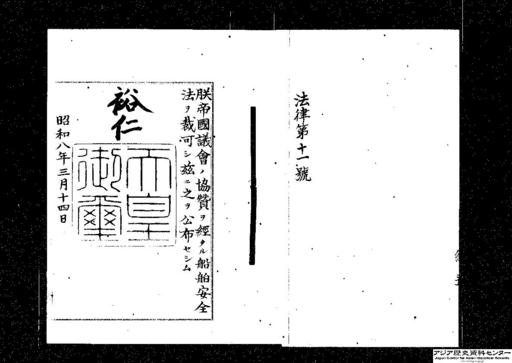 法律第十一號
朕帝國議會ノ協賛ヲ經タル船舶安全
法ヲ裁可シ茲ニ之ヲ公布セシム
裕仁
天皇
御璽
昭和八年三月十四日
アジア歴史資料センター
Japan Center for Asian Historical Records